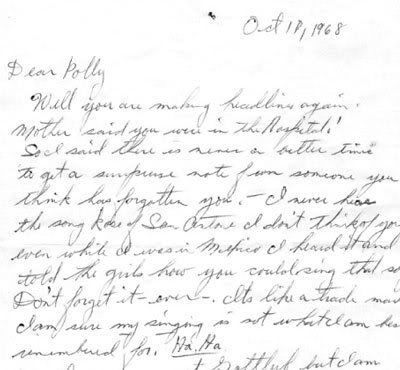 Oct 18, 1968
Dear Polly
Well you are making headlines again.
Mother said you were in the Hospital!
So I said there is never a better time
to get a surprise note from someone you
think has forgotten you. - I never hear
the song Rose of San Antone I don't think of you
even while I was in Mexico I heard it and
told the girls how you could sing that so
Don't forget it - ever -. Its like a trade mar
I am sure my singing is not what I am bes
remembered for. Ha. Ha
but I am